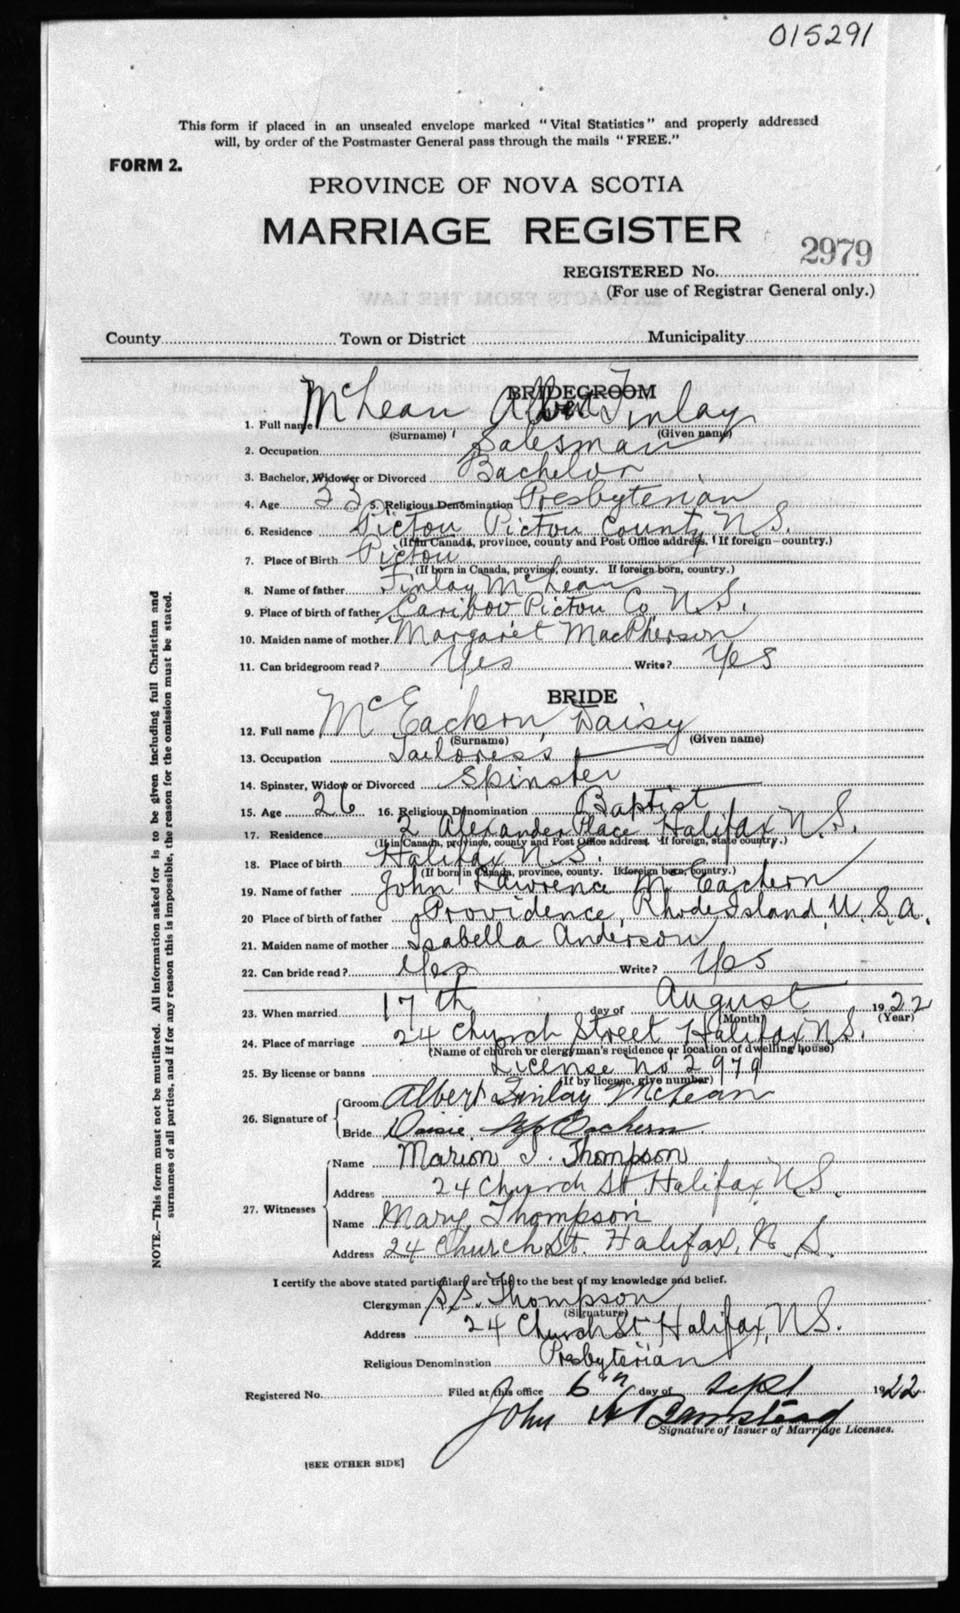 015291
This form if placed in an unsealed envelope marked "Vital Statistics" and properly addressed
will, by order of the Postmaster General pass through the mails "FREE."
FORM 2.
PROVINCE OF NOVA SCOTIA
MARRIAGE REGISTER
2979
REGISTERED No.
(For use of Registrar General only.)
County Town or District Municipality
BRIDEGROOM
1. Full name McLean Albert Finlay
(Surname) (Given name)
2. Occupation Salesman
3. Bachelor, Widower or Divorced Bachelor
4. Age 33 5. Religious Denomination Presbyterian
6. Residence Pictou Pictou County N.S.
(If in Canada, province, county and Post Office address. If foreign—country.)
7. Place of Birth Pictou
(If born in Canada, province, county. If foreign born, country.)
8. Name of father Finlay McLean
9. Place of birth of father Caribou Pictou Co N.S.
10. Maiden name of mother Margaret MacPherson
11. Can bridegroom read? Yes Write? Yes
BRIDE
12. Full name McEachern, Daisy
(Surname) (Given name)
13. Occupation Tailoress
14. Spinster, Widow or Divorced Spinster
15. Age 26 16. Religious Denomination Baptist
17. Residence 2 Alexander Place Halifax N.S.
(If in Canada, province, county and Post Office address. If foreign, state country.)
18. Place of birth Halifax N.S.
(If born in Canada, province, county. If foreign born, country.)
19. Name of father John Lawrence McEachern
20 Place of birth of father Providence, Rhode Island, U.S.A.
21. Maiden name of mother Isabella Anderson
22. Can bride read? Yes Write? Yes
23. When married 17th day of August 1922
(Month) (Year)
24. Place of marriage 24 Church Street Halifax N.S.
(Name of church or clergyman's residence or location of dwelling house)
25. By license or banns License No 2979
(If by license, give number)
26. Signature of Groom Albert Finlay McLean
Bride Daisie McEachern
27. Witnesses Name Marion I. Thompson
Address 24 Church St Halifax N.S.
Name Mary Thompson
Address 24 Church St. Halifax, N.S.
I certify the above stated particulars are true to the best of my knowledge and belief.
Clergyman Thompson
(Signature)
Address 24 Church St Halifax, N.S.
Religious Denomination Presbyterian
Registered No. Filed at this office 6th day of Sept 1922
John H Barnstead
Signature of Issuer of Marriage Licenses.
[SEE OTHER SIDE]
NOTE.—This form must not be mutilated. All information asked for is to be given including full Christian and
surnames of all parties, and if for any reason this is impossible, the reason for the omission must be stated.